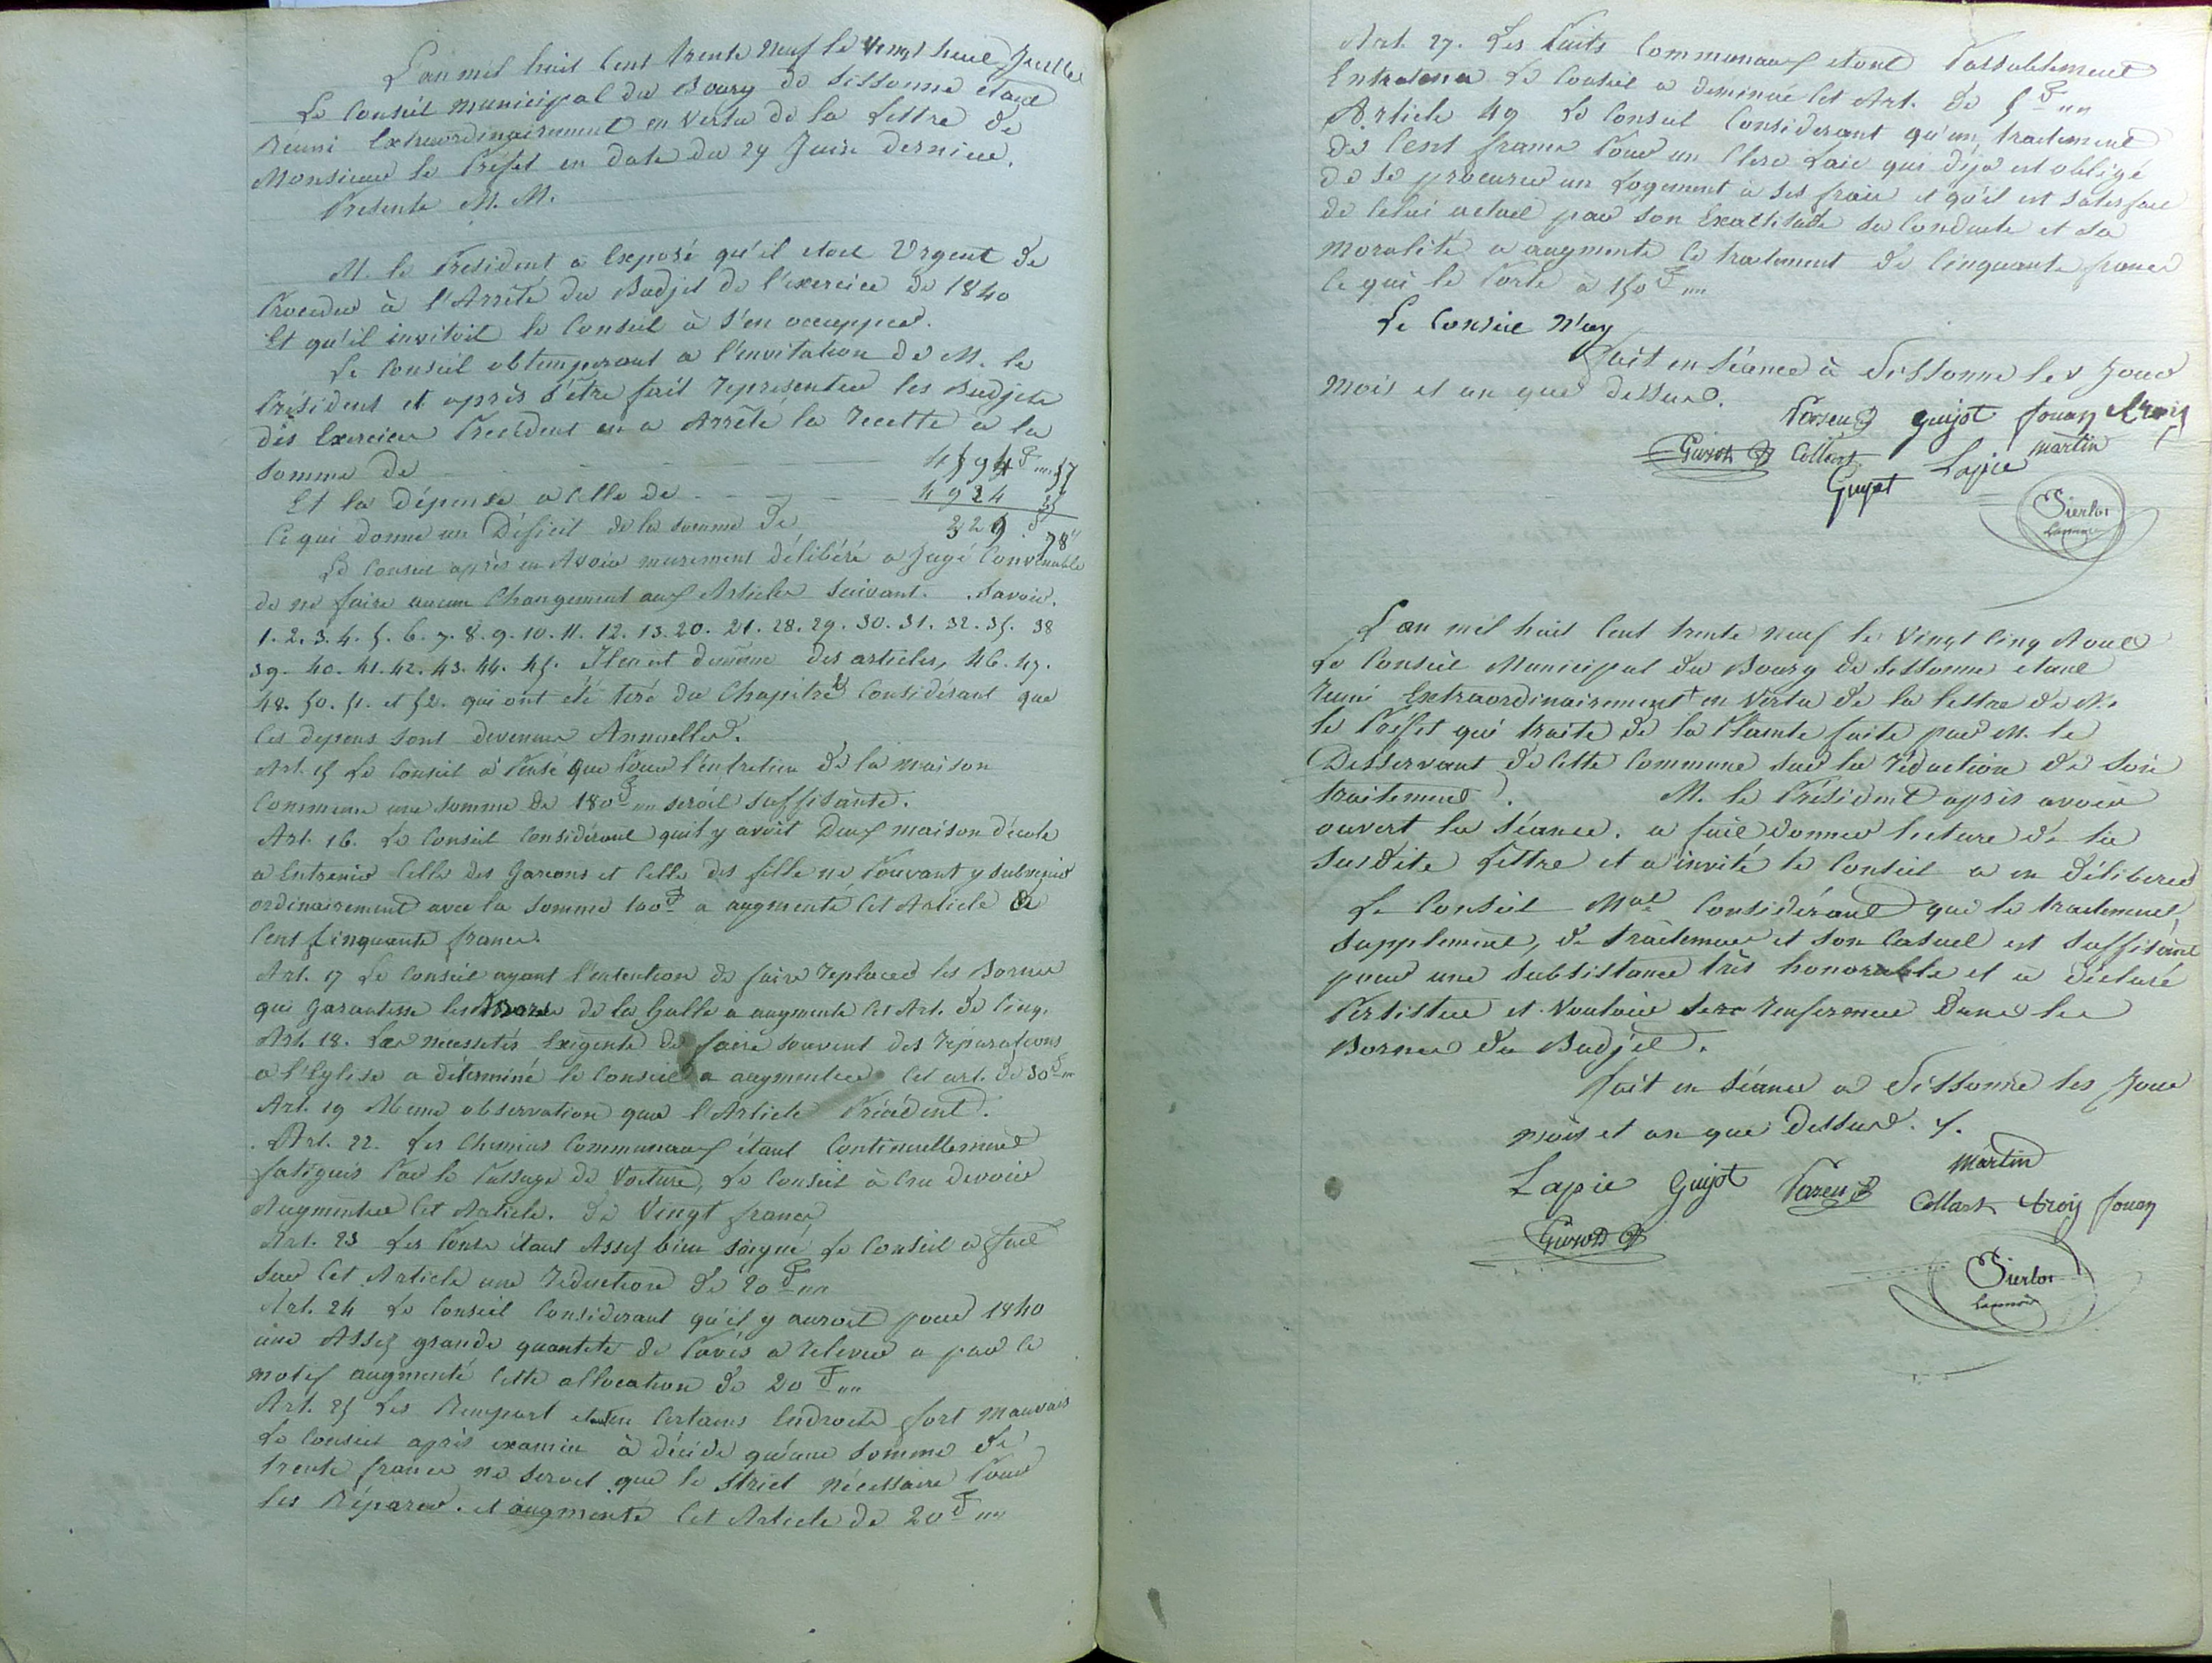 L'an mil huit Cent trente Neuf le Vingt huit Juillet
Le Conseil Municipal du Bourg de Sissonne étant
Réuni Extraordinairement en vertu de la Lettre de
Monsieur le Préfet en date du 29 Juin dernier.
Présents M. M.
M. le Président a Exposé qu'il etoit Urgent de
Procéder à l'Arrêté du Budjet de l'exercice de 1840
Et qu'il invitoit le Conseil à s'en occupper.
Le Conseil obtemperant a l'invitation de M. le
Président et après s'être fait representer les Budjets
des Exercices Precedent en a Arrêté la recette à la
somme de 4594 F 57
Et la Dépense a Celle de 4924 35
Ce qui donne un Déficit de la somme de 329 F 78
Le Conseil après en Avoir murement délibéré a Jugé Convenable
de ne faire aucun Changement aux Articles suivant. Savoir.
1. 2. 3. 4. 5. 6. 7. 8. 9. 10. 11. 12. 13. 20. 21. 28. 29. 30. 31. 32. 35. 38
39. 40. 41. 42. 43. 44. 45. Il en est de même des articles, 46. 47.
48. 50. 51. et 52. qui ont été tiré du Chapitre Considérant que
Ces depens sont devenues Annuelles.
Art. 15 Le Conseil a Pensé que Pour l'entretien de la maison
Commune une somme de 180 F seroit suffisante.
Art. 16. Le Conseil Considérant quil y avoit Deux maison d'école
a Entrenir Celle des Garcons et Celle des fille ne Pouvant y subvenir
ordinairement avec la somme 100 F a augmenté Cet Article de
Cent Cinquante francs.
Art. 17 Le Conseil ayant l'intention de faire replacer les Bornes
qui Garantisse les de la halle a augmenté Cet Art. de Cinq.
Art. 18. Les nécessités Exigente de faire souvent des réparations
a l'Eglise a déterminé le Conseil a augmenter Cet art. de 30 F
Art. 19 Meme observation que l'Article Précédent.
Art. 22. Les Chemins Communaux étant Continuellement
fatigués Par le Passage de Voiture, Le Conseil à Cru devoir
Augmenter Cet Article. de Vingt francs
Art. 23 Les Ponts étant Assez bien soigné Le Conseil a fait
sur Cet Article une réduction de 20 F
Art. 24 Le Conseil Considerant qu'il y auroit pour 1840
une Assez grande quantité de Pavés a relever a par ce
motif augmenté Cette allocation de 20 F
Art. 25 Les Rempart etant en Certains Endroits fort mauvais
Le Conseil après examin à décidé qu'une somme de
trente francs ne seroit que le strict nécessaire Pour
les Réparer. et augmenté Cet Article de 20 F
Art. 27. Les Puits Communaux etant Passablement
Entretenu Le Conseil a diminué Cet Art. de 5 F
Article 49 Le Conseil Considerant qu'un traitement
de Cent francs Pour un Clerc Laic qui déja est obligé
de se procurer un Logement à ses frais et qu'il est satisfait
de Celui actuel par son Exactitude sa Conduite et sa
moralité a augmenté Ce traitement de Cinquante francs
Ce qui le Porte à 150 F
Le Conseil N'ay
Fait en Séance à Sissonne les Jour
mois et an que dessus.
Guyot Jouan
Collart martin
Guyot Lapie
Pierlot
L'an mil huit Cent trente neuf le Vingt Cinq Aout
Le Conseil Municipal du Bourg de Sissonne etant
reuni Extraordinairement en Vertu de la lettre de M.
le Préfet qui traite de la Plainte faite par M. le
Desservant de Cette Commune sur la réduction de son
traitement. M. le Président après avoir
ouvert la Séance. a fait donner lecture de la
susdite Lettre et a invité le Conseil a en délibérer
Le Conseil Mal Considérant que le traitement,
supplement, de traitement et son Casuel est suffisant
pour une subsistance très honorable et a déclaré
Persister et Vouloir se renfermer Dans les
Bornes du Budjet.
fait en Séance a Sissonne les Jour
mois et an que Dessus.
martin
Lapie Guyot
Collart Jouan
Pierlot